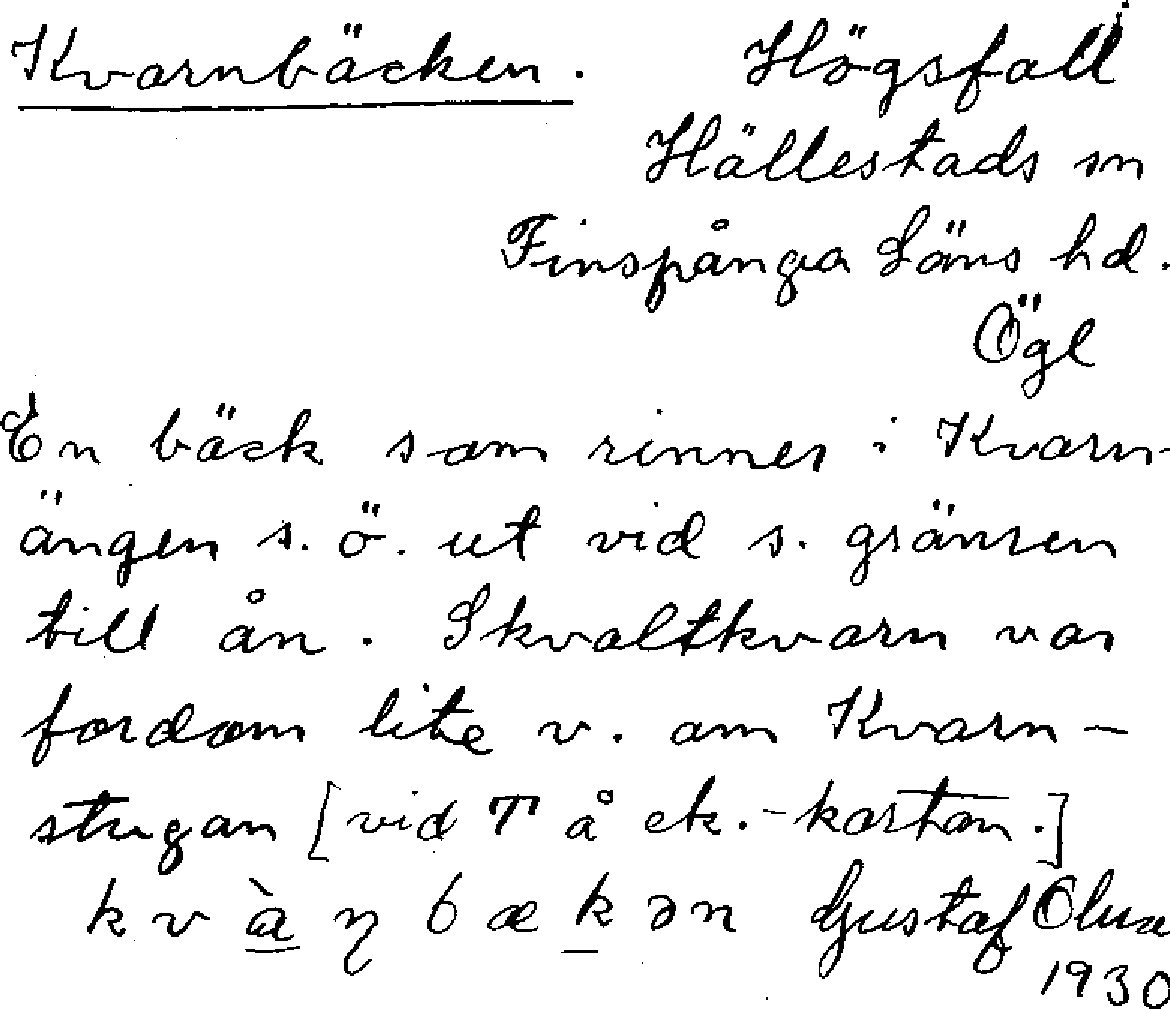 Kvarnbäcken. Högsfall
Hällestads sn
Finspånga Läns hd.
Ögl
En bäck som rinner i Kvarn-
ängen s. ö. ut vid s. gränsen
till ån. Skvaltkvarn var
fordom lite v. om Kvarn-
stugan [vid T å ek.-kartan.]
k v à ŋ b æ k ə n Gustaf
1930